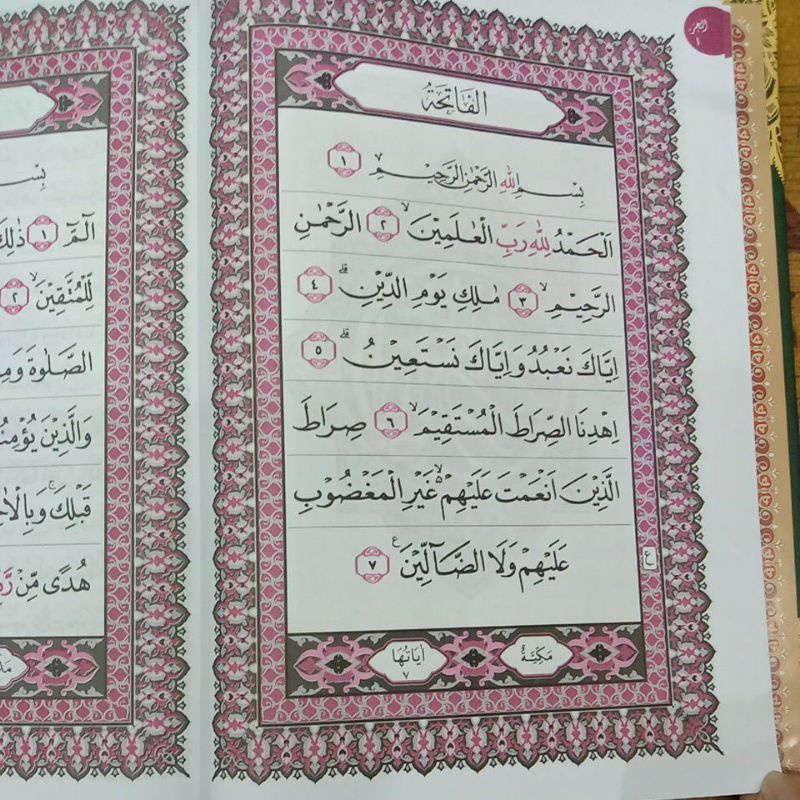 الجزء
١
الفَاتِحَةُ
بِسْمِ اللهِ الرَّحْمٰنِ الرَّحِيْمِ ۙ ١
اَلْحَمْدُ لِلّٰهِ رَبِّ الْعٰلَمِيْنَ ۙ ٢ الرَّحْمٰنِ
الرَّحِيْمِ ۙ ٣ مٰلِكِ يَوْمِ الدِّيْنِ ۗ ٤
اِيَّاكَ نَعْبُدُ وَاِيَّاكَ نَسْتَعِيْنُ ۗ ٥
اِهْدِنَا الصِّرَاطَ الْمُسْتَقِيْمَ ۙ ٦ صِرَاطَ
الَّذِيْنَ اَنْعَمْتَ عَلَيْهِمْ ۙ ەۙ غَيْرِ الْمَغْضُوْبِ
عَلَيْهِمْ وَلَا الضَّاۤلِّيْنَ ࣖ ٧
ع
مَكِّيَّةٌ
اٰيَاتُهَا
٧
بِسْـ
الۤمّۤ ١ ذٰلِكَ
لِّلْمُتَّقِيْنَ ۙ ٢
الصَّلٰوةَ وَمِـ
وَالَّذِيْنَ يُؤْمِنُـ
قَبْلِكَ ۚ وَبِالْاٰخِـ
هُدًى مِّنْ رَّ